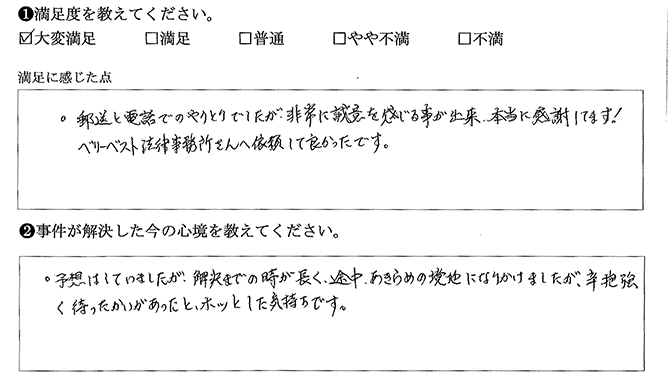 ❶満足度を教えてください。
☑大変満足 □満足 □普通 □やや不満 □不満
満足に感じた点
。郵送と電話でのやりとりでしたが、非常に誠意を感じる事が出来、本当に感謝してます!
ベリーベスト法律事務所さんへ依頼して良かったです。
❷事件が解決した今の心境を教えてください。
。予想はしていましたが、解決までの時が長く、途中、あきらめの境地になりかけましたが、辛抱強
く待ったかいがあったと、ホッとした気持ちです。